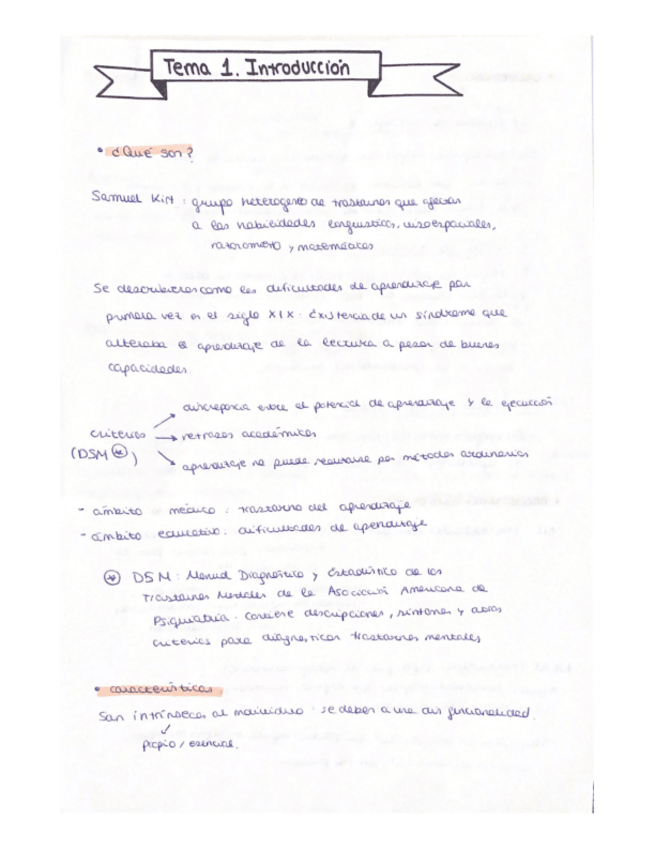 Tema 1. Introducción
• ¿Qué son?
Samuel Kirt : grupo heterogeneo de trastornos que afectan
a las habilidades linguisticas, visoespaciales,
razonamiento y matemáticas
Se describieron como las dificultades de aprendizaje por
primera vez en el siglo XIX. Existencia de un síndrome que
alteraba el aprendizaje de la lectura a pesar de buenas
capacidades.
discrepancia entre el potencial de aprendizaje y la ejecución
criterios → retrasos académicos
(DSM *)
aprendizaje no puede realizarse por métodos ordinarios
- ámbito médico : trastorno del aprendizaje
- ámbito educativo: dificultades de aprendizaje
* DSM : Manual Diagnóstico y Estadístico de los
Trastornos Mentales de la Asociación Americana de
Psiquiatría. Contiene descripciones, síntomas y otros
criterios para diagnosticar trastornos mentales
• características
San intrínsecas al individuo. se deben a una disfuncionalidad.
propio / esencial.